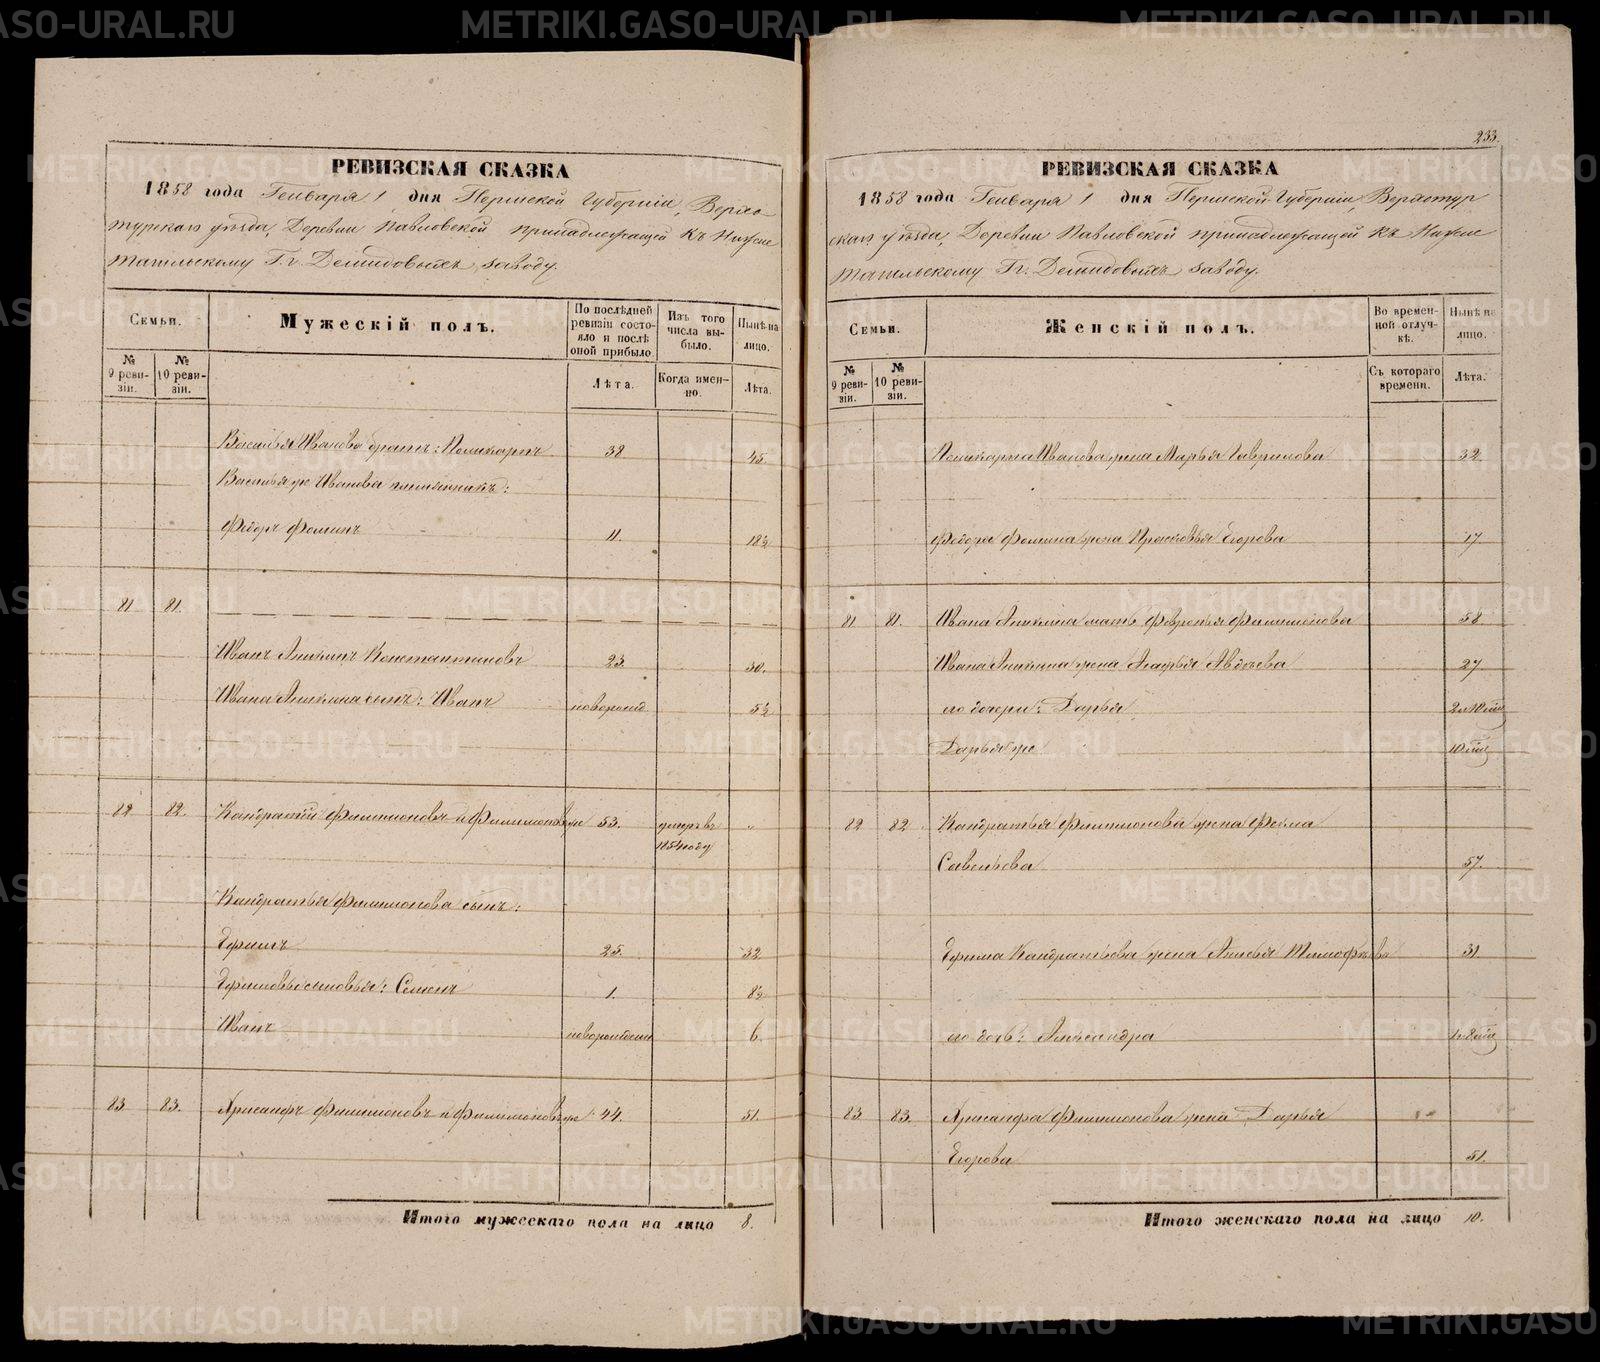 РЕВИЗСКАЯ СКАЗКА
1858 года Генваря 1 дня Пермской Губерніи, Верхо-
турскаго уѣзда, Деревни Павловской принадлежащей къ Нижне
тагильскому Г.г. Демидовыхъ заводу.
Семьи.
Мужескій полъ.
По послѣдней ревизіи состо-яло и послѣ оной прибыло
Изъ того числа вы-было.
Нынѣ на лицо.
№ 9 реви-зіи.
№ 10 реви-зіи.
Лѣта.
Когда имен-но.
Лѣта.
Василья Иванова братъ: Поликарпъ 38 45.
Василья же Иванова племянникъ:
Федоръ Фоминъ 11. 18½
81 81.
Иванъ Аникинъ Константиновъ 23. 30.
Ивана Аникина сынъ: Иванъ новорожд. 5½
82 82. Кандратій Филимоновъ и Филимоновъ же 53. умеръ въ "
1854 году
Кандратья Филимонова сынъ:
Ефимъ 25. 32
Ефимовы сыновья: Семенъ 1. 8½
Иванъ новорожденн 6.
83 83. Хрисанфъ Филимоновъ и Филимоновъ же 44. 51.
Итого мужескаго пола на лицо 8.
233.
РЕВИЗСКАЯ СКАЗКА
1858 года Генваря 1 дня Пермской Губерніи, Верхотур
скаго уѣзда, Деревни Павловской принадлежащей къ Нижне
тагильскому Гг. Демидовыхъ заводу.
Семьи.
Женскій полъ.
Во времен-ной отлуч-кѣ.
Нынѣ на лицо.
№ 9 реви-зіи.
№ 10 реви-зіи.
Съ котораго времени.
Лѣта.
Поликарпа Иванова жена Марья Гаврилова 32
Федора Фомина жена Прасковья Егорова 17
81 81. Ивана Аникина мать Февронья Филимонова 58
Ивана Аникина жена Агафья Авдѣева 27
его дочери: Дарья
Дарья же
82 82. Кандратья Филимонова жена Фекла
Савельева 57.
Ефима Кандратьева жена Анисья Тимофѣева 31
его дочь: Александра
83 83. Хрисанфа Филимонова жена Дарья
Егорова 51.
Итого женскаго пола на лицо 10.
METRIKI.GASO-URAL.RU